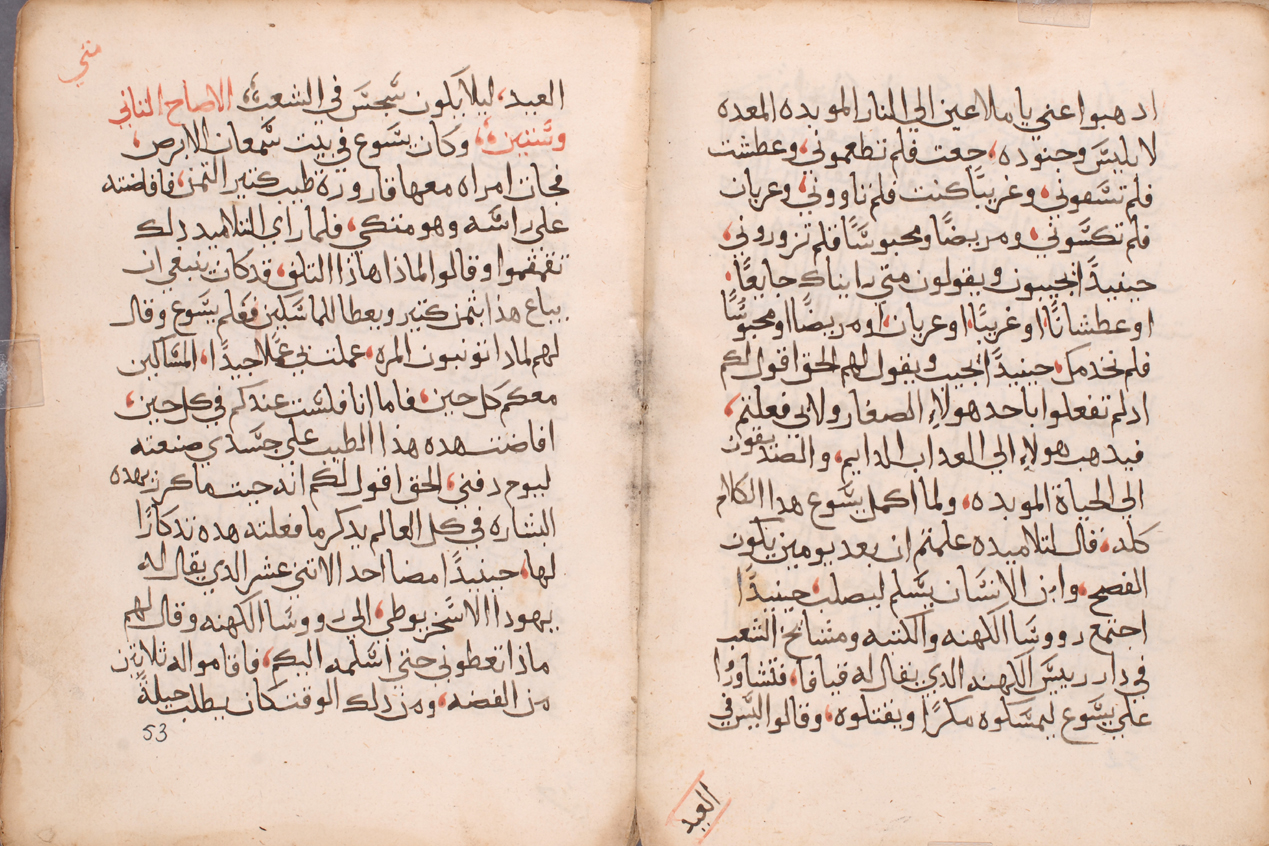 ادهبوا عني يا ملاعين الي النار الموبده المعده
لابليس وجنوده، جعت فلم تطعموني، وعطشت
فلم تسقوني، وغريبًا كنت فلم تاووني، وعريان
فلم تكسوني، ومريضًا ومحبوسًا فلم تزوروني،
حينيدًا يجيبون ويقولون متي رايناك جايعًا،
او عطشانًا، او غريبًا، او عريان، او مريضًا او محبوسًا
فلم نخدمك، حينيدًا يجيب ويقول لهم الحق اقول لكم
ادلم تفعلوا باحد هولاء الصغار ولا بي فعلتم،
فيدهب هولاء الي العداب الدايم، والصديقون
الي الحياة الموبده، ولما اكمل يسوع هدا الكلام
كله، قال لتلاميده علمتم ان بعد يومين يكون
الفصح، وابن الانسان يسلم ليصلب، حينيدًا
اجتمع رووسا الكهنه والكتبه ومشايخ الشعب
في دار رييس الكهنه الدي يقال له قيافا، فتشاورُا
علي يسوع ليمسكوه مكرًا ويقتلوه، وقالوا ليس في
العيد
متي
العيد، ليلا يكون سجس في الشعب، الاصاح التاني
وستين، وكان يسوع في بيت سمعان الابرص،
فجات امراه معها قارورة طيب كتير التمن، فافاضته
علي راسه وهو متكي، فلما راي التلاميد دلك
تقمقموا وقالوا لماذا هاذا التلف، قد كان ينبغي ان
يباع هذا بتمن كتير ويعطا للماسكين فعلم يسوع وقال
لهم لمادا تونبون المره، عملت بي عملًا جيدًا، المساكين
معكم كل حين، فاما انا فلست عندكم في كل حين،
افاضت هده هذا الطيب علي جسدي صنعته
ليوم دفني، الحق اقول لكم انه حيت ما كرز بهده
البشاره في كل العالم يدكر ما فعلته هده تدكارًا
لها، حينيدًا مضا احد الاتني عشر الدي يقال له
يهودا الاسخريوطي، الي رووسا الكهنه وقال لهم
ماذا تعطوني حتي اسلمه اليكم، فاقاموا له تلاتين
من الفضه، ومن دلك الوقت كان يطلب حيلةً
53